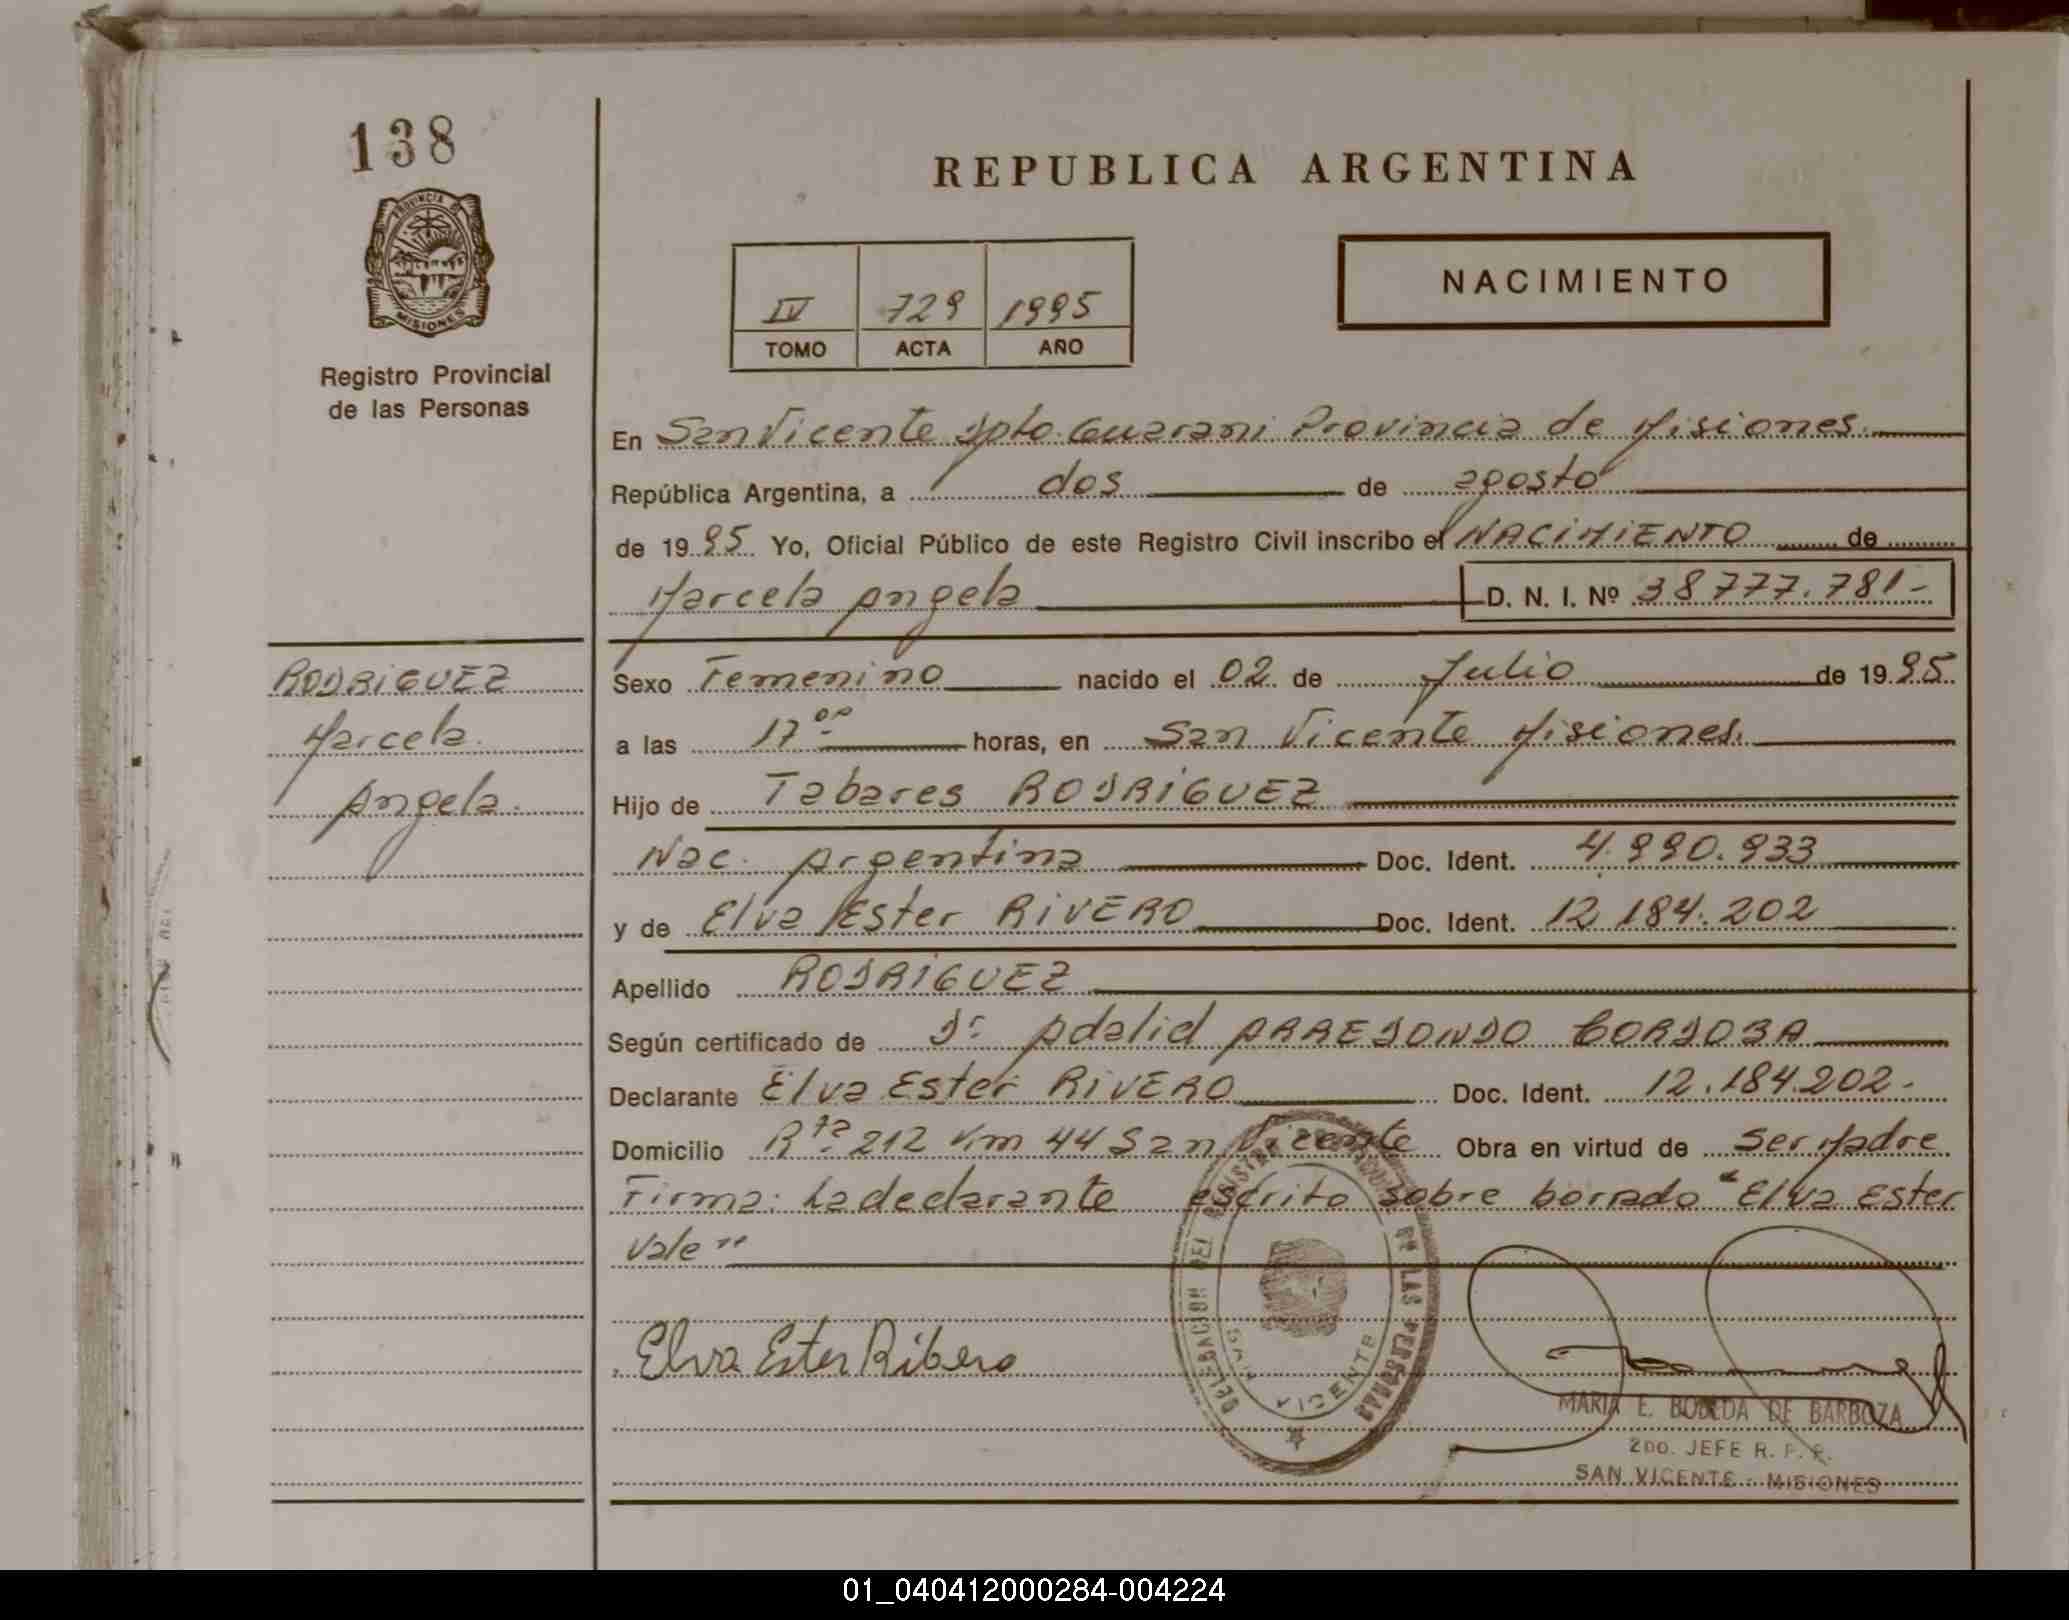 138
PROVINCIA DE
MISIONES
Registro Provincial
de las Personas
RODRIGUEZ
Marcela
Angela.
REPUBLICA ARGENTINA
IV 729 1995
TOMO ACTA AÑO
NACIMIENTO
En San Vicente Dpto. Guarani Provincia de Misiones.
República Argentina, a dos de agosto
de 1995 Yo, Oficial Público de este Registro Civil inscribo el NACIMIENTO de
Marcela Angela D. N. I. Nº 38777.781-
Sexo Femenino nacido el 02 de Julio de 1995.
a las 17 oo horas, en San Vicente Misiones.
Hijo de Tabares RODRIGUEZ
Nac. Argentina Doc. Ident. 4.990.933
y de Elva Ester RIVERO Doc. Ident. 12 184.202
Apellido RODRIGUEZ
Según certificado de Dr Adalid ARREDONDO CORDOBA
Declarante Elva Ester RIVERO Doc. Ident. 12.184.202.
Domicilio Rta 212 Km 44 San Vicente Obra en virtud de ser Madre
Firma: La declarante escrito sobre borrado "Elva Ester
Vale"
DELEGACION DEL REGISTRO DE LAS PERSONAS
SAN VICENTE
Elva Ester Ribero
MARIA E. BOBEDA DE BARBOZA
2DO. JEFE R. P. P.
SAN VICENTE - MISIONES
01_040412000284-004224